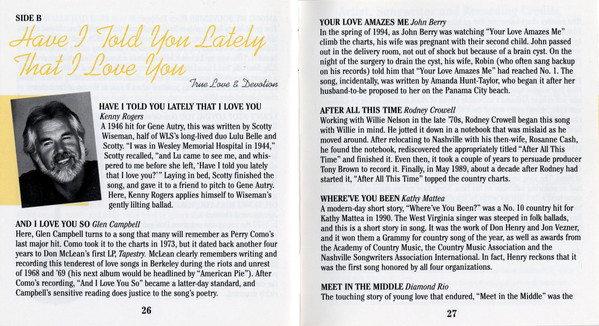 SIDE B
Have I Told You Lately
That I Love You
True Love & Devotion
HAVE I TOLD YOU LATELY THAT I LOVE YOU
Kenny Rogers
A 1946 hit for Gene Autry, this was written by Scotty
Wiseman, half of WLS's long-lived duo Lulu Belle and
Scotty. “I was in Wesley Memorial Hospital in 1944,”
Scotty recalled, “and Lu came to see me, and whis-
pered to me before she left, ‘Have I told you lately
that I love you?’” Laying in bed, Scotty finished the
song, and gave it to a friend to pitch to Gene Autry.
Here, Kenny Rogers applies himself to Wiseman's
gently lilting ballad.
AND I LOVE YOU SO Glen Campbell
Here, Glen Campbell turns to a song that many will remember as Perry Como's
last major hit. Como took it to the charts in 1973, but it dated back another four
years to Don McLean's first LP, Tapestry. McLean clearly remembers writing and
recording this tenderest of love songs in Berkeley during the riots and unrest
of 1968 and '69 (his next album would be headlined by “American Pie”). After
Como's recording, “And I Love You So” became a latter-day standard, and
Campbell's sensitive reading does justice to the song's poetry.
26
YOUR LOVE AMAZES ME John Berry
In the spring of 1994, as John Berry was watching “Your Love Amazes Me”
climb the charts, his wife was pregnant with their second child. John passed
out in the delivery room, not out of shock but because of a brain cyst. On the
night of the surgery to drain the cyst, his wife, Robin (who often sang backup
on his records) told him that “Your Love Amazes Me” had reached No. 1. The
song, incidentally, was written by Amanda Hunt-Taylor, who began it after her
husband-to-be proposed to her on the Panama City beach.
AFTER ALL THIS TIME Rodney Crowell
Working with Willie Nelson in the late '70s, Rodney Crowell began this song
with Willie in mind. He jotted it down in a notebook that was mislaid as he
moved around. After relocating to Nashville with his then-wife, Rosanne Cash,
he found the notebook, rediscovered the appropriately titled “After All This
Time” and finished it. Even then, it took a couple of years to persuade producer
Tony Brown to record it. Finally, in May 1989, about a decade after Rodney had
started it, “After All This Time” topped the country charts.
WHERE'VE YOU BEEN Kathy Mattea
A modern-day short story, “Where've You Been?” was a No. 10 country hit for
Kathy Mattea in 1990. The West Virginia singer was steeped in folk ballads,
and this is a short story in song. It was the work of Don Henry and Jon Vezner,
and it won them a Grammy for country song of the year, as well as awards from
the Academy of Country Music, the Country Music Association and the
Nashville Songwriters Association International. In fact, Henry reckons that it
was the first song honored by all four organizations.
MEET IN THE MIDDLE Diamond Rio
The touching story of young love that endured, “Meet in the Middle” was the
27